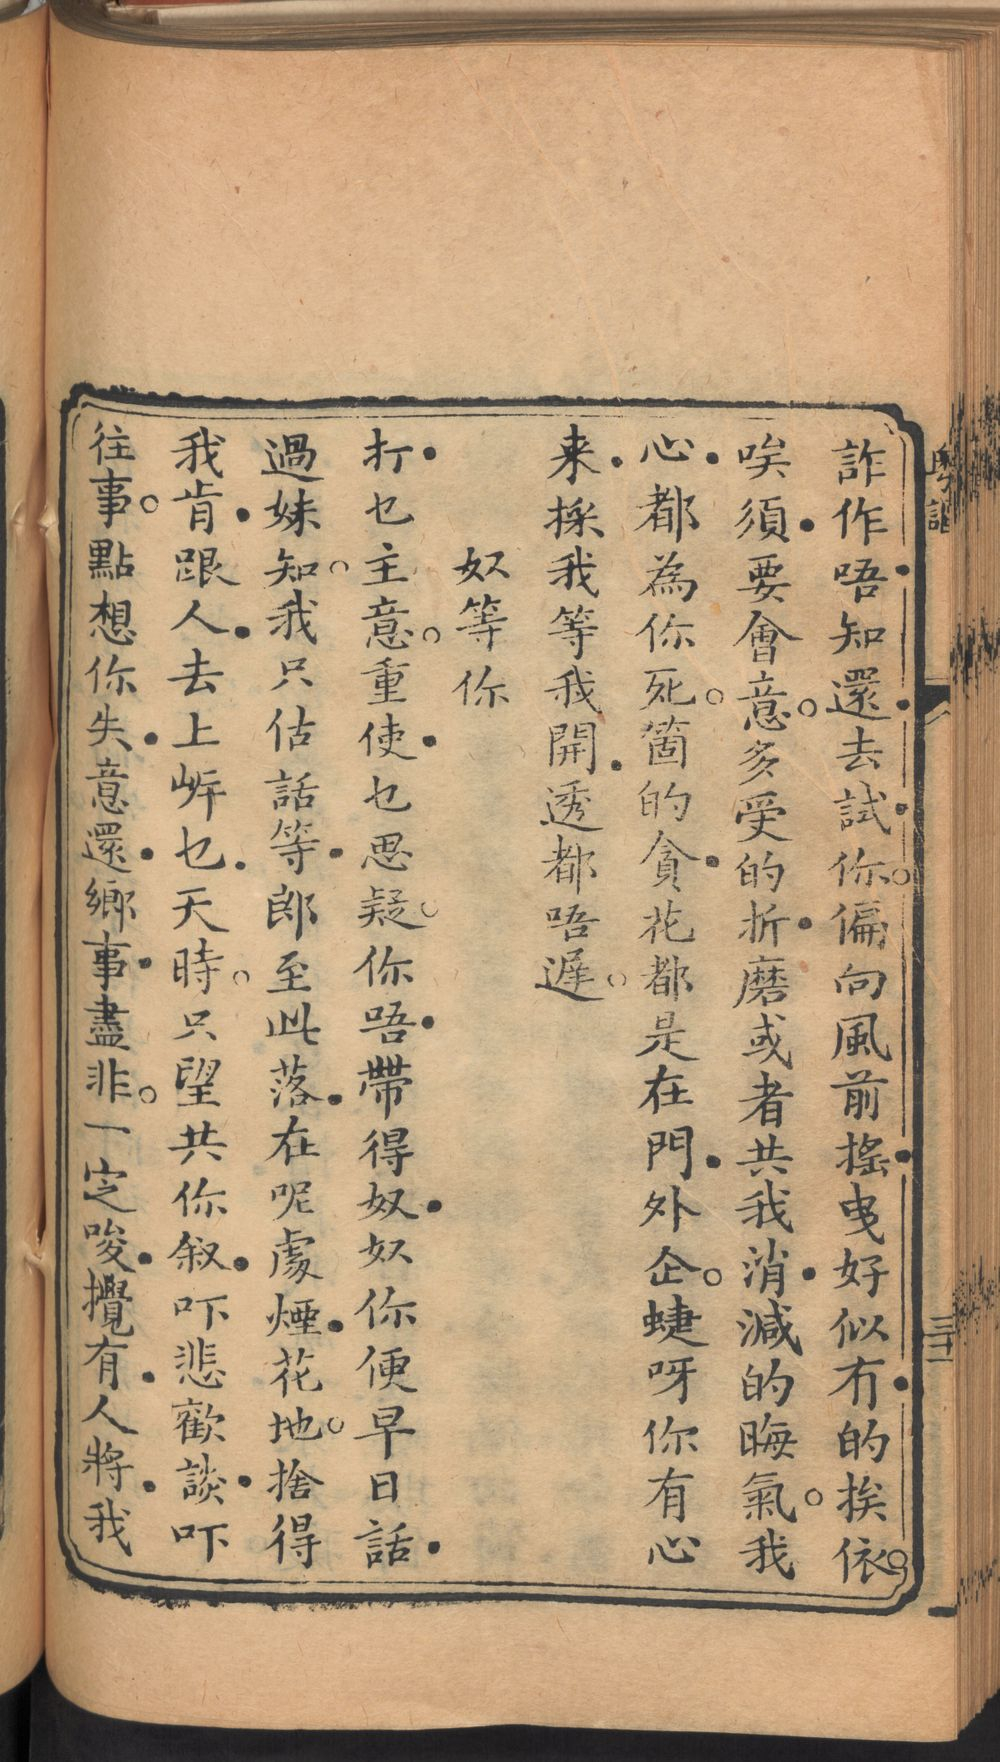 詐作唔知還去試你偏向風前搖曳好似冇的挨依
唉須要會意多受的折磨或者共我消減的晦氣我
心都為你死箇的貪花都是在門外企蜨呀你有心
来採我等我開透都唔遲
奴等你
打乜主意重使乜思疑你唔帶得奴奴你便早日話
過妹知我只估話等郎至此落在呢處煙花地捨得
我肯跟人去上岸乜天時只望共你叙吓悲歡談吓
往事點想你失意還鄉事盡非一定唆攪有人將我
粵謳
三十一